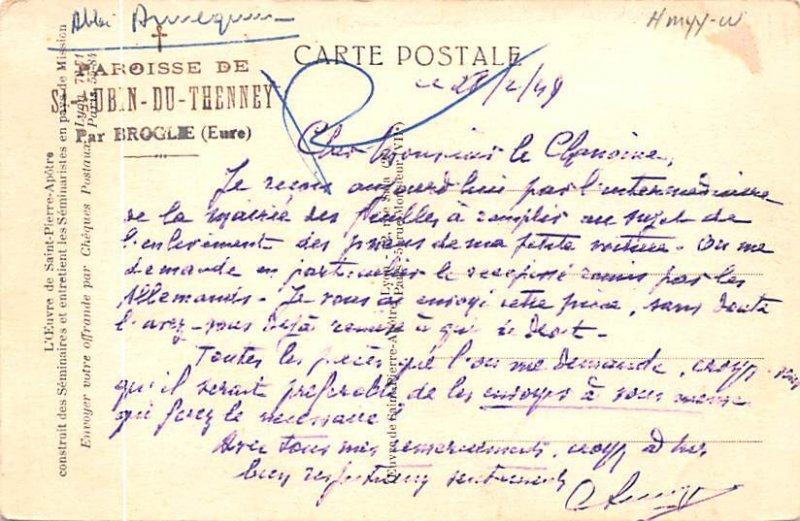 Abbé
CARTE POSTALE
PAROISSE DE
St-AUBIN-DU-THENNEY
Par BROGLIE (Eure)
ce 28/2/49
Cher Monsieur le Chanoine,
Je reçois aujourd'hui par l'intermédiaire
de la mairie des feuilles à remplir au sujet de
l'enlèvement des pneus de ma petite voiture. On me
demande en particulier le récépissé remis par les
Allemands. Je vous ai envoyé cette pièce, sans doute
l'avez-vous déjà remise à qui de droit.
Toutes les pièces que l'on me demande, croyez-vous
qu'il serait préférable de les envoyer à vous même
qui ferez le nécessaire.
Avec tous mes remerciements, croyez à mes
bien respectueux sentiments
L'Œuvre de Saint-Pierre-Apôtre
construit des Séminaires et entretient les Séminaristes en pays de Mission
Envoyer votre offrande par Chèques Postaux
Œuvre de Saint-Pierre-Apôtre